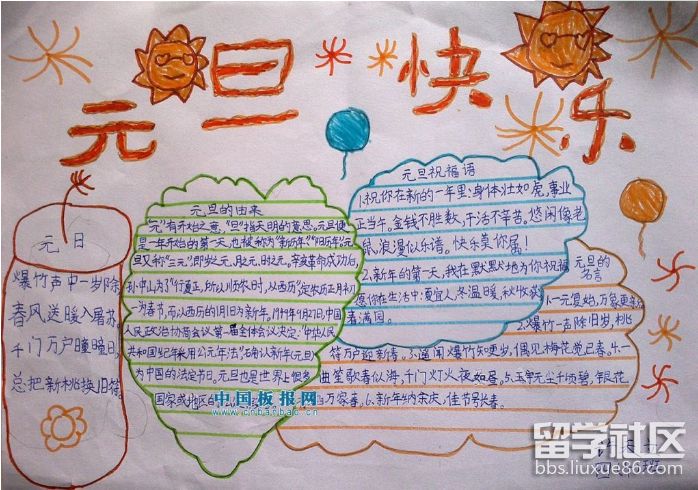 元旦快乐
元日
爆竹声中一岁除
春风送暖入屠苏
千门万户曈曈日,
总把新桃换旧符
元旦的由来
"元"有开始之意,"旦"指天明的意思。元旦便
是一年开始的第一天,也被称为"新历年""阳历年"。元
旦又称"三元",即岁之元,月之元,时之元。辛亥革命成功后,
孙中山为了"行夏正,所以顺农时,从西历
为春节,而以西历的1月1日为新年。1949年9月27日,中国
人民政治协商会议第一届全体会议决定:"中华人民
共和国纪年采用公元年法",
为中国的法定节日。元旦也是世界上很多
国家或地区的
元旦祝福语
1.祝你在新的一年里:身体壮如虎,事业
正当午。金钱不胜数,干活不辛苦。悠闲像老
鼠,浪漫似乐谱。快乐莫你属!
2.新年的第一天,我在默默地为你祝福
愿你在生活中:夏宜人,冬温暖,秋收获
春满园。
元旦的
名言
1.一元复始,万象更
2.爆竹一声除旧岁,桃
符万户迎新春。3.遥闻爆竹知更岁,偶见梅花觉已春。4.一
曲笙歌春似海,千门灯火夜如昼。5.玉宇无尘千顷碧,银花
万家春。6.新年纳余庆,佳节号长春。
中国板报网
www.cnbanbao.cn
留学社区
bbs.liuxue86.com